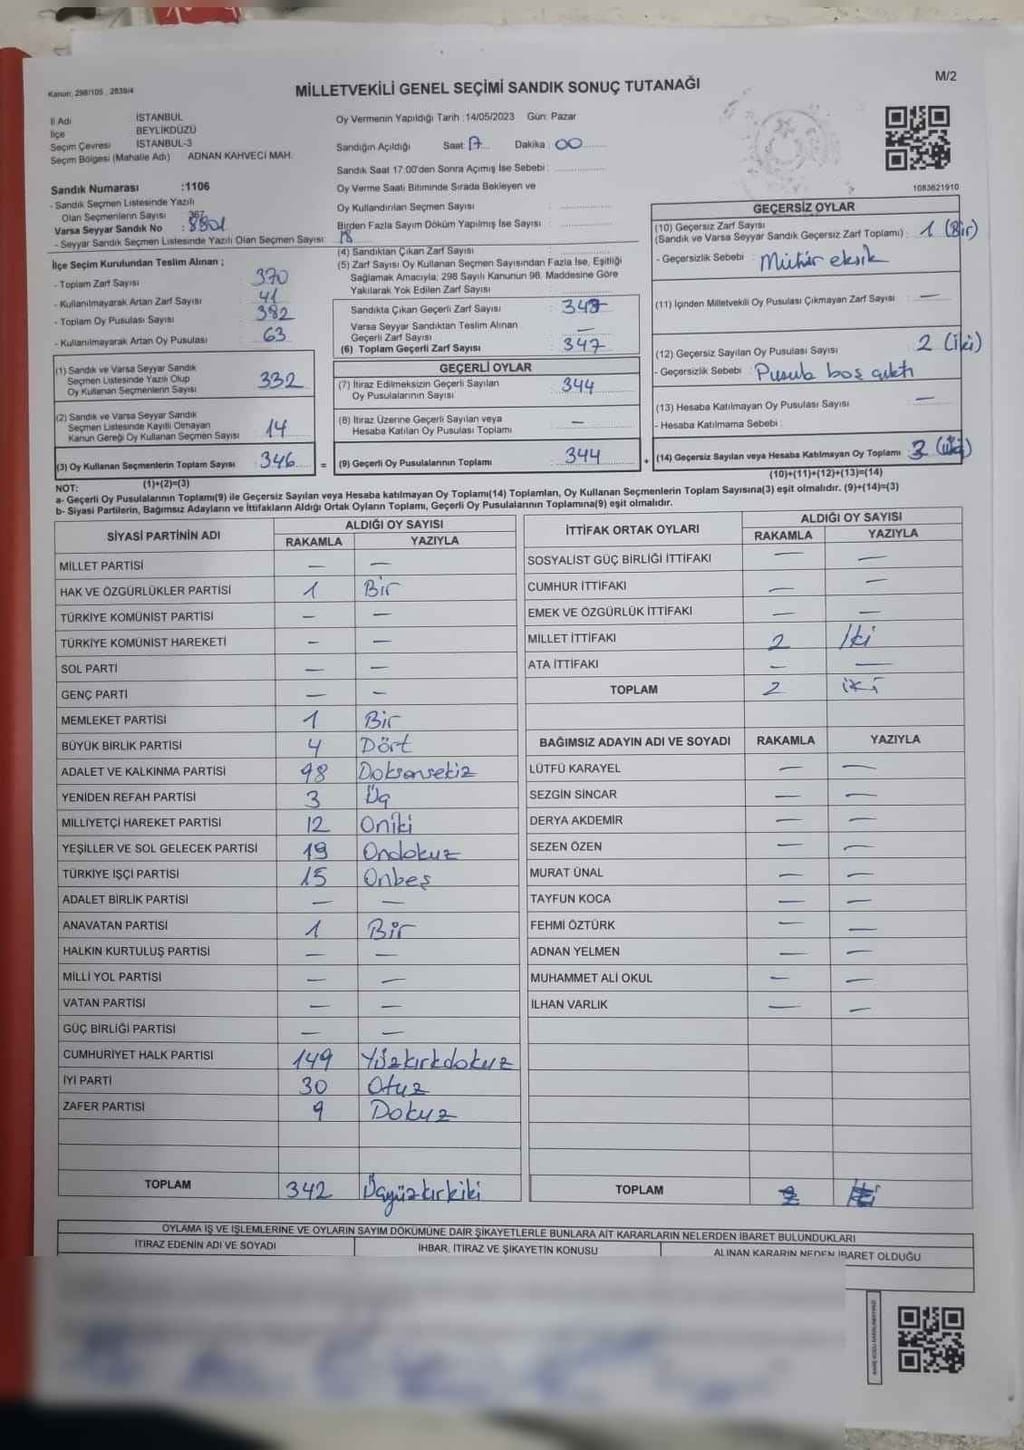 Kanun: 298/105, 2839/4
MİLLETVEKİLİ GENEL SEÇİMİ SANDIK SONUÇ TUTANAĞI
M/2
İl Adı İSTANBUL
İlçe BEYLİKDÜZÜ
Seçim Çevresi İSTANBUL-3
Seçim Bölgesi (Mahalle Adı) ADNAN KAHVECİ MAH.
Oy Vermenin Yapıldığı Tarih :14/05/2023 Gün: Pazar
Sandığın Açıldığı Saat 17 Dakika : 00
Sandık Saat 17:00'den Sonra Açımış İse Sebebi :
Oy Verme Saati Bitiminde Sırada Bekleyen ve
Oy Kullandırılan Seçmen Sayısı :
Birden Fazla Sayım Döküm Yapılmış İse Sayısı :
1083621910
Sandık Numarası :1106
- Sandık Seçmen Listesinde Yazılı
Olan Seçmenlerin Sayısı : 367
Varsa Seyyar Sandık No
- Seyyar Sandık Seçmen Listesinde Yazılı Olan Seçmen Sayısı: 18
İlçe Seçim Kurulundan Teslim Alınan ;
- Toplam Zarf Sayısı 370
- Kullanılmayarak Artan Zarf Sayısı 41
- Toplam Oy Pusulası Sayısı 382
- Kullanılmayarak Artan Oy Pusulası 63
(1) Sandık ve Varsa Seyyar Sandık
Seçmen Listesinde Yazılı Olup
Oy Kullanan Seçmenlerin Sayısı 332
(2) Sandık ve Varsa Seyyar Sandık
Seçmen Listesinde Kayıtlı Olmayan
Kanun Gereği Oy Kullanan Seçmen Sayısı 14
(3) Oy Kullanan Seçmenlerin Toplam Sayısı 346
(1)+(2)=(3)
(4) Sandıktan Çıkan Zarf Sayısı
(5) Zarf Sayısı Oy Kullanan Seçmen Sayısından Fazla İse, Eşitliği
Sağlamak Amacıyla, 298 Sayılı Kanunun 98. Maddesine Göre
Yakılarak Yok Edilen Zarf Sayısı :
Sandıkta Çıkan Geçerli Zarf Sayısı
Varsa Seyyar Sandıktan Teslim Alınan
Geçerli Zarf Sayısı —
(6) Toplam Geçerli Zarf Sayısı 347
GEÇERLİ OYLAR
(7) İtiraz Edilmeksizin Geçerli Sayılan
Oy Pusulalarının Sayısı 344
(8) İtiraz Üzerine Geçerli Sayılan veya
Hesaba Katılan Oy Pusulası Toplamı —
= (9) Geçerli Oy Pusulalarının Toplamı 344
GEÇERSİZ OYLAR
(10) Geçersiz Zarf Sayısı
(Sandık ve Varsa Seyyar Sandık Geçersiz Zarf Toplamı) : 1 (Bir)
- Geçersizlik Sebebi : Mühür eksik
(11) İçinden Milletvekili Oy Pusulası Çıkmayan Zarf Sayısı —
(12) Geçersiz Sayılan Oy Pusulası Sayısı 2 (iki)
- Geçersizlik Sebebi Pusula boş çıktı
(13) Hesaba Katılmayan Oy Pusulası Sayısı —
- Hesaba Katılmama Sebebi :
+ (14) Geçersiz Sayılan veya Hesaba Katılmayan Oy Toplamı
(10)+(11)+(12)+(13)=(14)
NOT:
a- Geçerli Oy Pusulalarının Toplamı(9) ile Geçersiz Sayılan veya Hesaba katılmayan Oy Toplamı(14) Toplamları, Oy Kullanan Seçmenlerin Toplam Sayısına(3) eşit olmalıdır. (9)+(14)=(3)
b- Siyasi Partilerin, Bağımsız Adayların ve İttifakların Aldığı Ortak Oyların Toplamı, Geçerli Oy Pusulalarının Toplamına(9) eşit olmalıdır.
SİYASİ PARTİNİN ADI ALDIĞI OY SAYISI
RAKAMLA YAZIYLA
MİLLET PARTİSİ — —
HAK VE ÖZGÜRLÜKLER PARTİSİ 1 Bir
TÜRKİYE KOMÜNİST PARTİSİ — —
TÜRKİYE KOMÜNİST HAREKETİ — —
SOL PARTİ — —
GENÇ PARTİ — —
MEMLEKET PARTİSİ 1 Bir
BÜYÜK BİRLİK PARTİSİ 4 Dört
ADALET VE KALKINMA PARTİSİ 98 Doksansekiz
YENİDEN REFAH PARTİSİ 3 Üç
MİLLİYETÇİ HAREKET PARTİSİ 12 Oniki
YEŞİLLER VE SOL GELECEK PARTİSİ 19 Ondokuz
TÜRKİYE İŞÇİ PARTİSİ 15 Onbeş
ADALET BİRLİK PARTİSİ — —
ANAVATAN PARTİSİ 1 Bir
HALKIN KURTULUŞ PARTİSİ — —
MİLLİ YOL PARTİSİ — —
VATAN PARTİSİ — —
GÜÇ BİRLİĞİ PARTİSİ — —
CUMHURİYET HALK PARTİSİ 149 Yüzkırkdokuz
İYİ PARTİ 30 Otuz
ZAFER PARTİSİ 9 Dokuz
TOPLAM 342 Üçyüzkırkiki
İTTİFAK ORTAK OYLARI ALDIĞI OY SAYISI
RAKAMLA YAZIYLA
SOSYALİST GÜÇ BİRLİĞİ İTTİFAKI — —
CUMHUR İTTİFAKI — —
EMEK VE ÖZGÜRLÜK İTTİFAKI — —
MİLLET İTTİFAKI 2 İki
ATA İTTİFAKI — —
TOPLAM 2 iki
BAĞIMSIZ ADAYIN ADI VE SOYADI RAKAMLA YAZIYLA
LÜTFÜ KARAYEL — —
SEZGİN SİNCAR — —
DERYA AKDEMİR — —
SEZEN ÖZEN — —
MURAT ÜNAL — —
TAYFUN KOCA — —
FEHMİ ÖZTÜRK — —
ADNAN YELMEN — —
MUHAMMET ALİ OKUL — —
İLHAN VARLIK — —
TOPLAM
OYLAMA İŞ VE İŞLEMLERİNE VE OYLARIN SAYIM DÖKÜMÜNE DAİR ŞİKAYETLERLE BUNLARA AİT KARARLARIN NELERDEN İBARET BULUNDUKLARI
İTİRAZ EDENİN ADI VE SOYADI İHBAR, İTİRAZ VE ŞİKAYETİN KONUSU ALINAN KARARIN NEDEN İBARET OLDUĞU